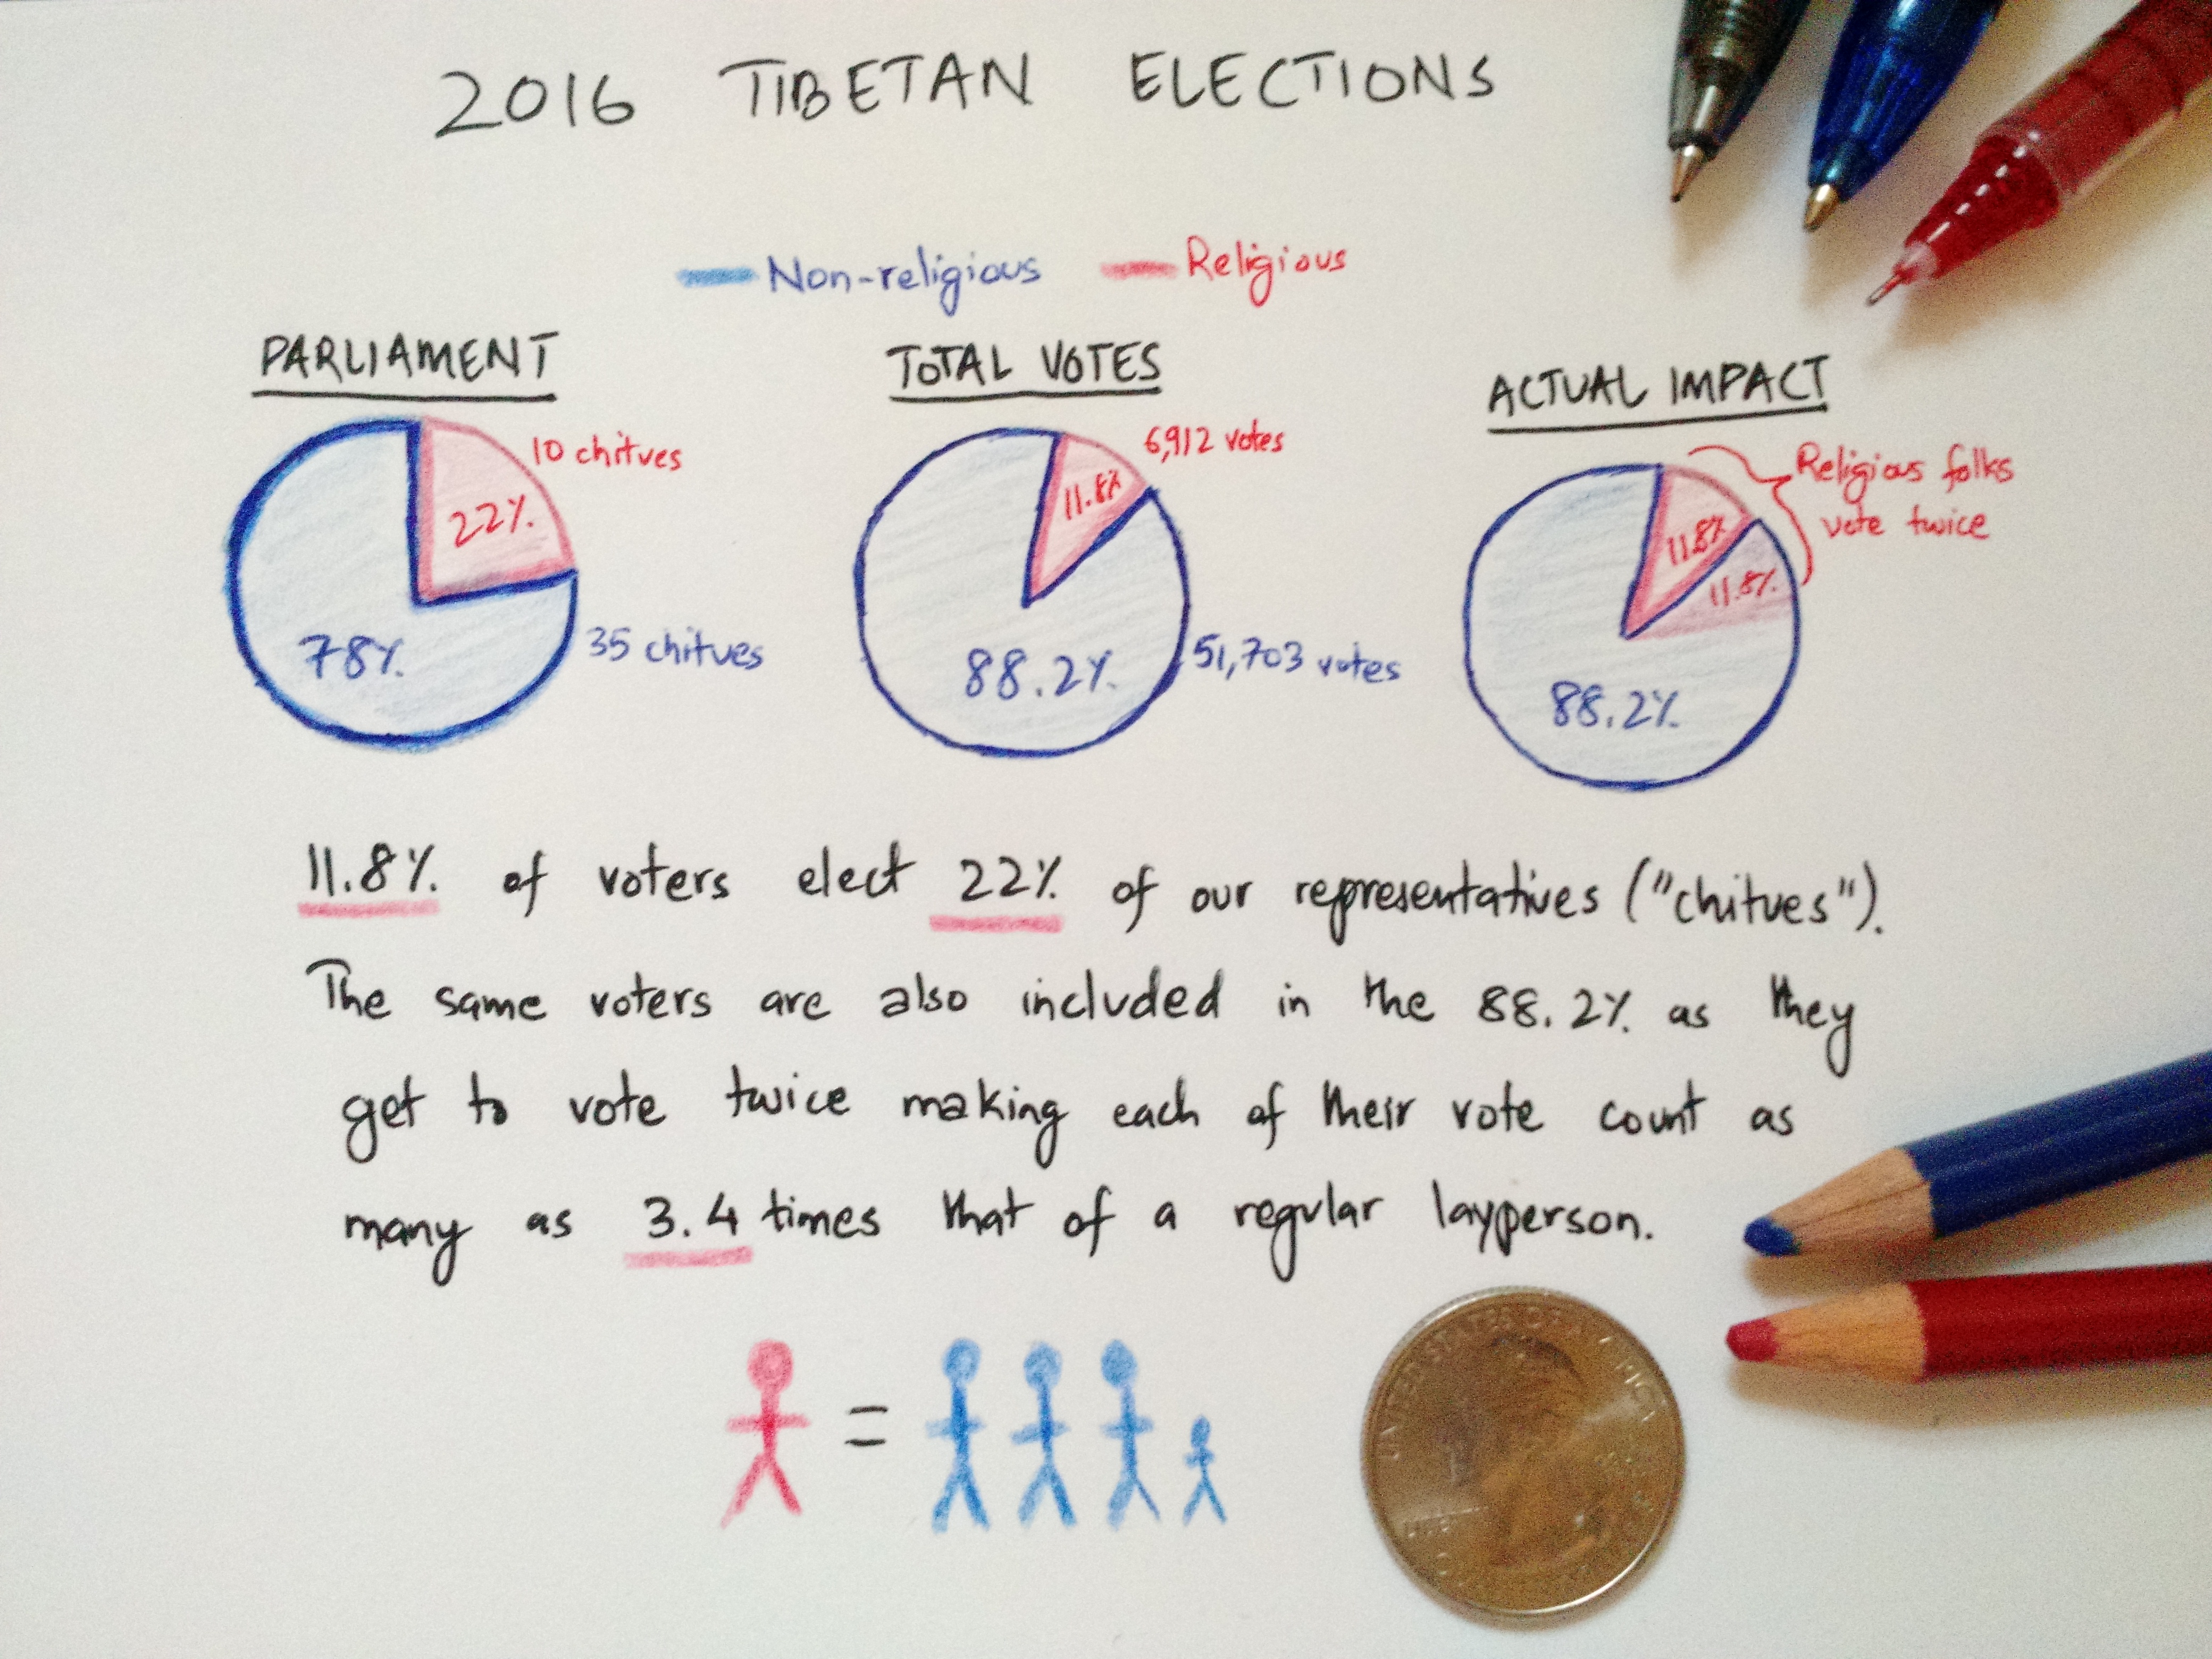 2016 TIBETAN ELECTIONS
Non-religious Religious
PARLIAMENT
10 chitves
22%
78%
35 chitves
TOTAL VOTES
6,912 votes
11.8%
88.2%
51,703 votes
ACTUAL IMPACT
Religious folks
vote twice
11.8%
11.8%
88.2%
11.8% of voters elect 22% of our representatives ("chitues").
The same voters are also included in the 88.2% as they
get to vote twice making each of their vote count as
many as 3.4 times that of a regular layperson.
=
UNITED STATES OF AMERICA